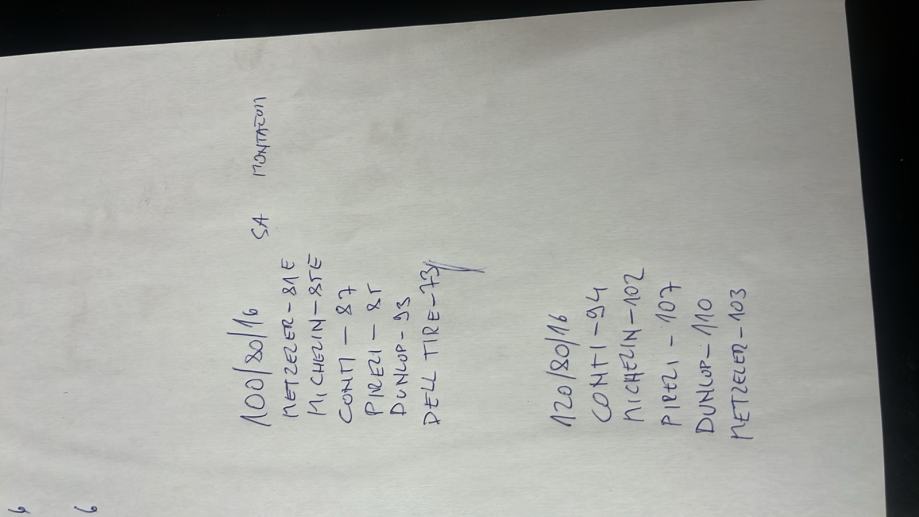 100/80/16 SA MONTAŽOM
METZELER - 81 E
MICHELIN - 85 E
CONTI - 87
PIRELI - 85
DUNLOP - 93
DELL TIRE - 73
120/80/16
CONTI - 94
MICHELIN - 102
PIRELI - 107
DUNLOP - 110
METZELER - 103
6
6